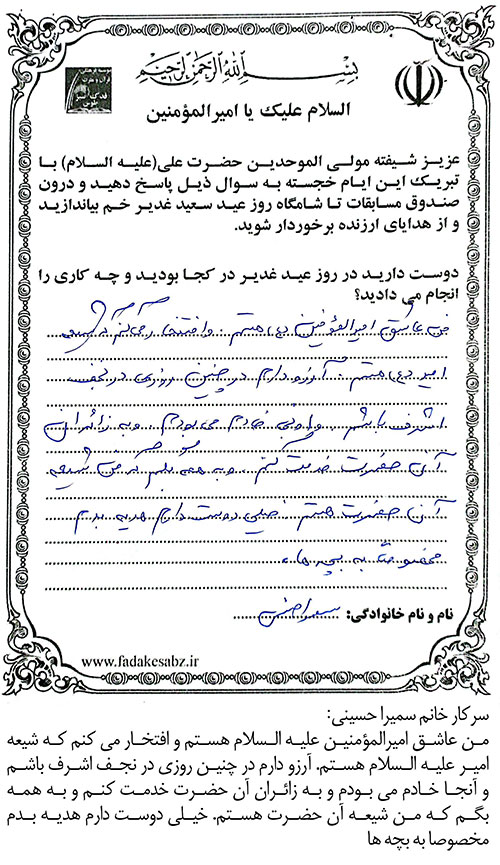 بسم الله الرحمن الرحیم
السلام علیک یا امیرالمؤمنین
عزیز شیفته مولی الموحدین حضرت علی(علیه السلام) با
تبریک این ایام خجسته به سوال ذیل پاسخ دهید و درون
صندوق مسابقات تا شامگاه روز عید سعید غدیر خم بیاندازید
و از هدایای ارزنده برخوردار شوید.
دوست دارید در روز عید غدیر در کجا بودید و چه کاری را
انجام می دادید؟
من عاشق امیرالمؤمنین (ع) هستم. و افتخار می‌کنم که شیعه
امیر (ع) هستم. آرزو دارم در چنین روزی در نجف
اشرف باشم. و آنجا خادم می‌بودم. و به زائران
آن حضرت خدمت کنم. و به همه بگم که من شیعه
آن حضرت هستم. خیلی دوست دارم هدیه بدم
مخصوصاً به بچه‌ها.
نام و نام خانوادگی:
www.fadakesabz.ir
سرکار خانم سمیرا حسینی:
من عاشق امیرالمؤمنین علیه السلام هستم و افتخار می کنم که شیعه
امیر علیه السلام هستم. آرزو دارم در چنین روزی در نجف اشرف باشم
و آنجا خادم می بودم و به زائران آن حضرت خدمت کنم و به همه
بگم که من شیعه آن حضرت هستم. خیلی دوست دارم هدیه بدم
مخصوصا به بچه ها